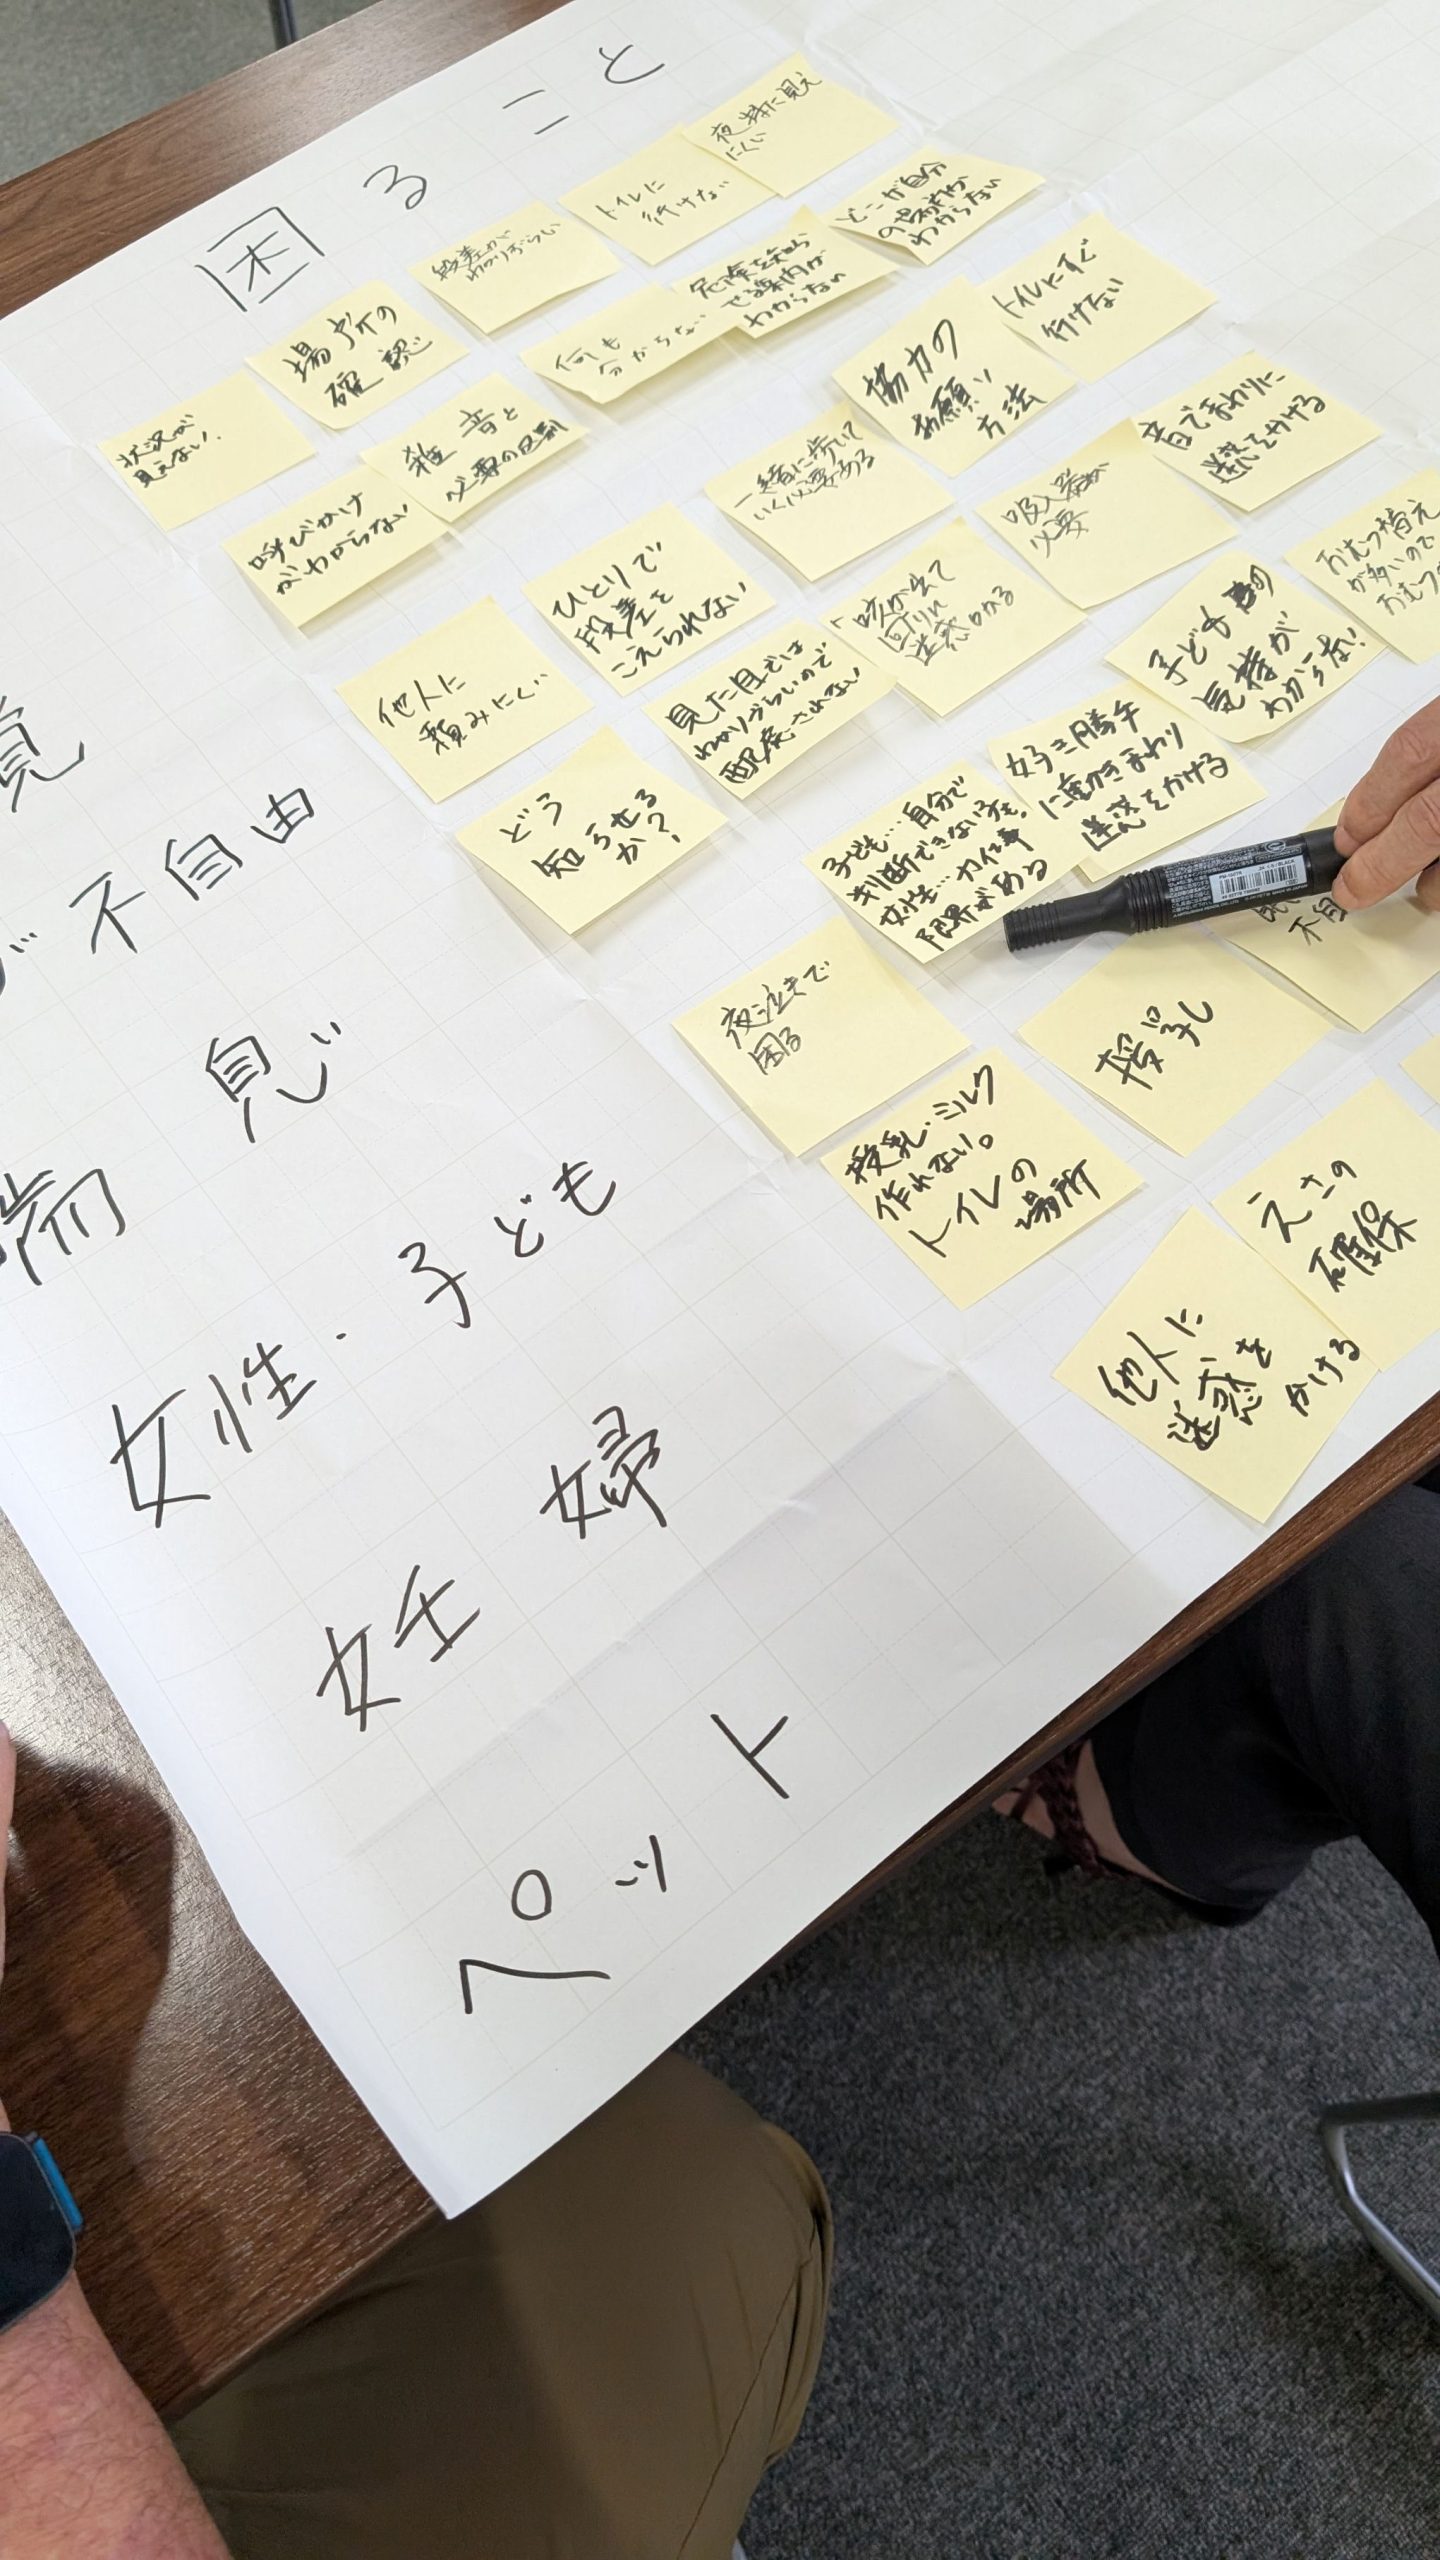 困ること
夜特に見え
にくい
トイレに
行けない
段差が
わかりづらい
場所の
確認
状況が
見えない.
どこが自分
の場所か
わからない
危険を知ら
せる案内が
わからない
何も
分からない
雑音と
必要の区別
呼びかけ
がわからない
トイレにすぐ
行けない
協力の
お願い
方法
一緒に歩いて
いく必要ある
ひとりで
段差を
こえられない
他人に
頼みにくい
音でまわりに
迷惑をかける
吸入器が
必要
咳が出て
回りに
迷惑かかる
見た目では
わかりづらいので
配慮されない
どう
知らせる
か?
おむつ替え
が多いので
おむつの
子どもの
気持が
わからない!
好き勝手
に動きまわり
迷惑をかける
子ども…自分で
判断できない子も.
女性…力仕事
限界がある
夜泣きで
困る
不自
授乳
授乳.ミルク
作れない。
トイレの
場所
えさの
確保
他人に
迷惑を
かける
覚
不自由
見
喘息
女性・子ども
妊婦
ペット